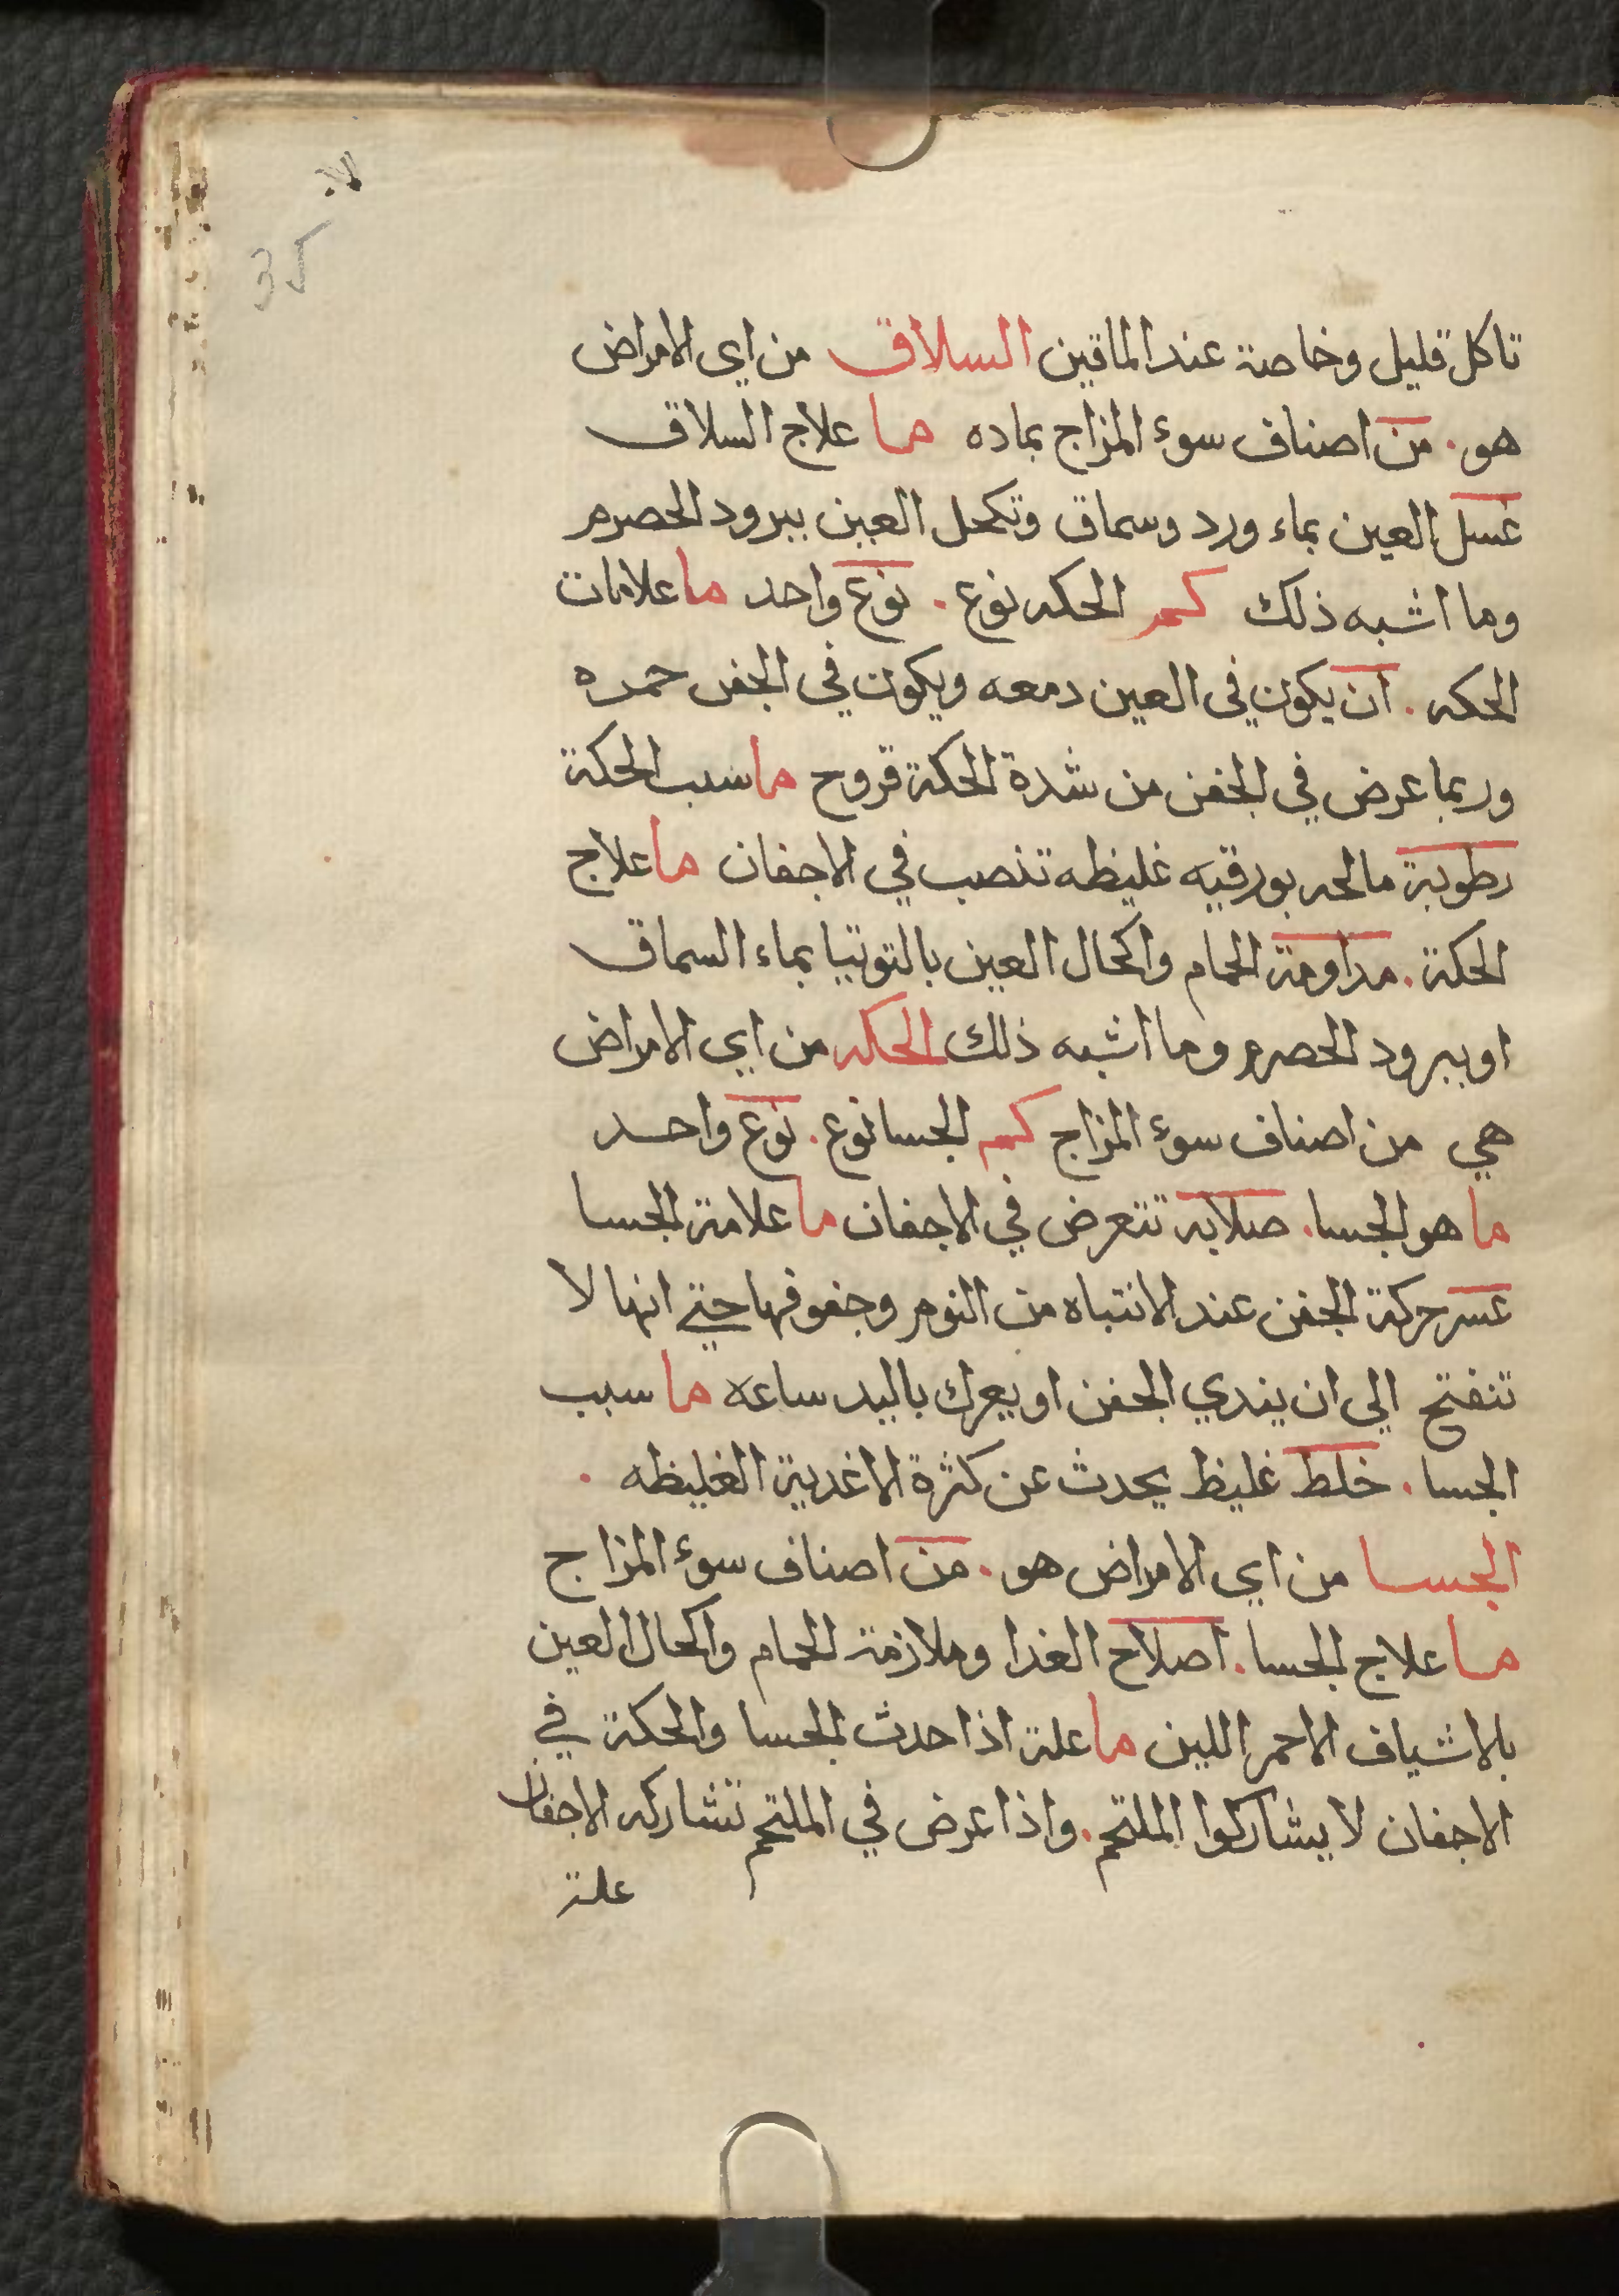 تاكل قليل وخاصة عند الماقين السلاق من اي الامراض
هو. من اصناف سوء المزاج بماده ما علاج السلاق
غسل العين بماء ورد وسماق وتكحل العين ببرود الحصرم
وما اشبه ذلك كم الحكه نوع. نوع واحد ما علامات
الحكه. ان يكون في العين دمعه ويكون في الجفن حمره
وربما عرض في الجفن من شدة الحكة قروح ما سبب الحكة
رطوبة مالحه بورقيه غليظه تنصب في الاجفان ما علاج
الحكة. مداومة الحمام واكحال العين بالتوتيا بماء السماق
او ببرود الحصرم وما اشبه ذلك الحكه من اي الامراض
هي من اصناف سوء المزاج كم الجسا نوع. نوع واحد
ما هو الجسا. صلابه تتعرض في الاجفان ما علامة الجسا
عسر حركة الجفن عند الانتباه من النوم وجفوفها حتى انها لا
تنفتح الي ان يندي الجفن او يعرك باليد ساعه ما سبب
الجسا. خلط غليظ يحدث عن كثرة الاغدية الغليظه.
الجسا من اي الامراض هو. من اصناف سوء المزاج
ما علاج الجسا. اصلاح الغدا وملازمة الحمام واكحال العين
بالاشياف الاحمر اللين ما علة اذا حدث الجسا والحكة في
الاجفان لا يشاركوا الملتحم. واذا عرض في الملتحم تشاركه الاجفان
علة